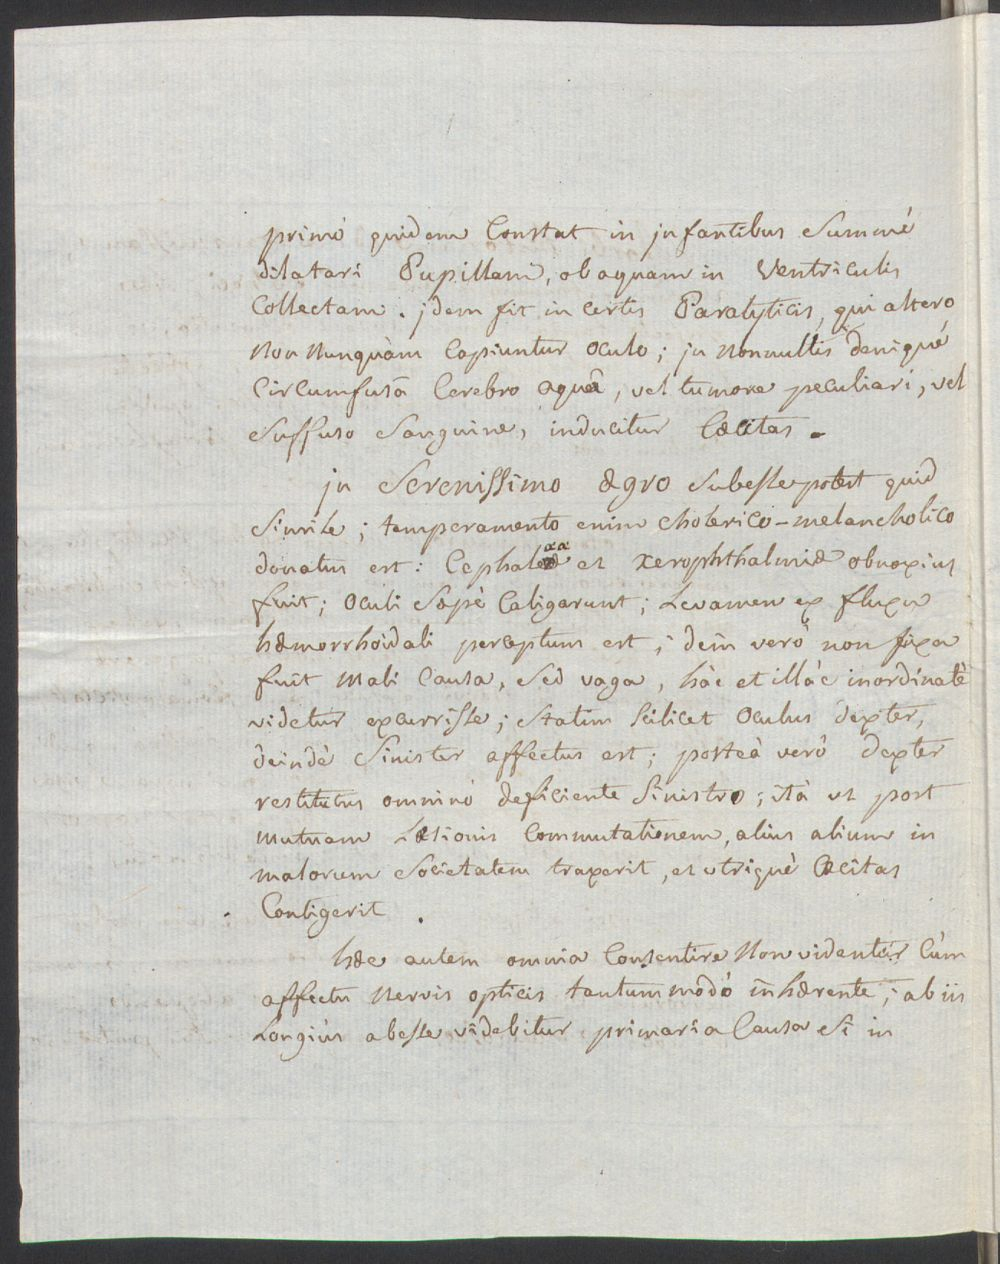 primò quidem Constat in jnfantibus Summè
dilatari Pupillam, ob aquam in Ventriculis
Collectam. jdem fit in Certis Paralyticis, qui altero
Non Nunquàm Capiuntur Oculo; jn Nonnullis deniquè
Circumfusâ Cerebro aquâ, vel tumore peculiari, vel
Suffuso Sanguine, inducitur Cæcitas.
jn Serenissimo ægro Subesse potest quid
Simile; temperamento enim cholerico-melancholico
donatus est: Cephalææ et xerophthalmiæ obnoxius
fuit; Oculi Sæpè Caligarunt; Levamen ex fluxu
hæmorrhoidali perceptum est; dein verò non fixa
fuit Mali Causa, Sed vaga, hàc et illàc inordinatè
videtur excurrisse; Statim Scilicet Oculus dexter,
deindè Sinister affectus est; posteà verò dexter
restitutus omninò deficiente Sinistro; ità ut post
mutuam Læsionis Commutationem, alius alium in
malorum Societatem traxerit, et utriquè Cæcitas
Contigerit.
hæc autem omnia Consentire Non videntur Cùm
affectu Nervis opticis tantummodò inhærente; ab iis
Longiùs abesse videbitur primaria Causa Si in